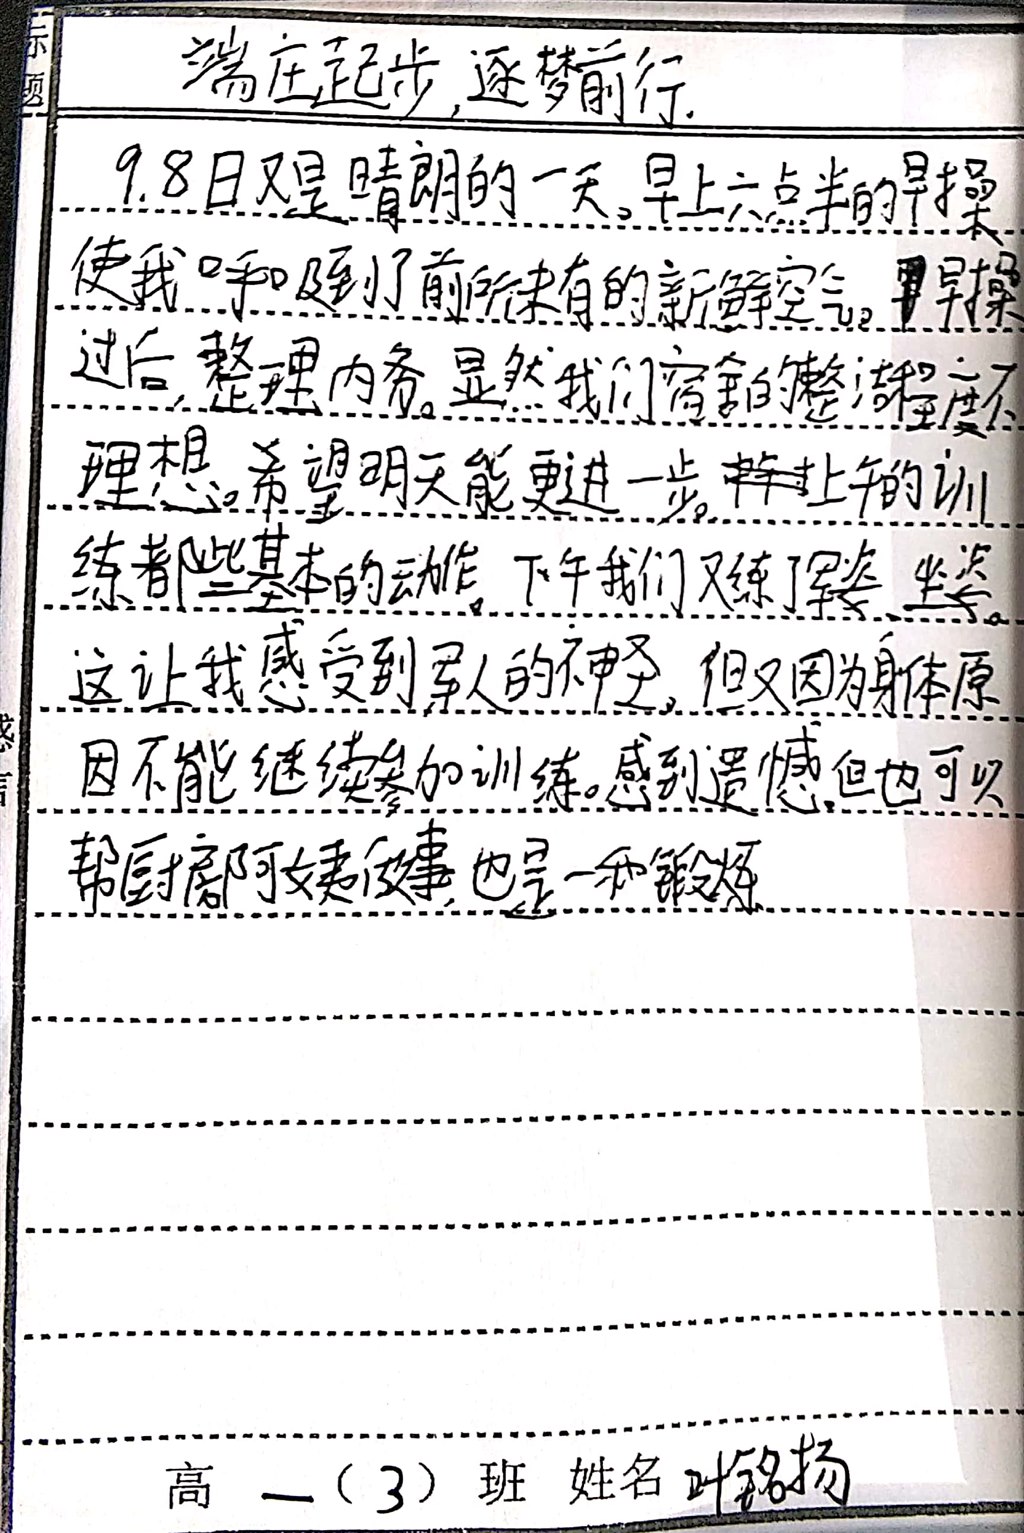 标题
端庄起步,逐梦前行.
9.8日又是晴朗的一天。早上六点半的早操
使我呼吸到了前所未有的新鲜空气。早操
过后,整理内务。显然我们宿舍的整洁程度不
理想。希望明天能更进一步。上午的训
练都些基本的动作。下午我们又练了军姿、坐姿。
这让我感受到军人的神圣,但又因为身体原
因不能继续参加训练。感到遗憾,但也可以
帮厨房阿姨做事,也是一种锻炼
感言
高一(3)班 姓名 叶铭扬